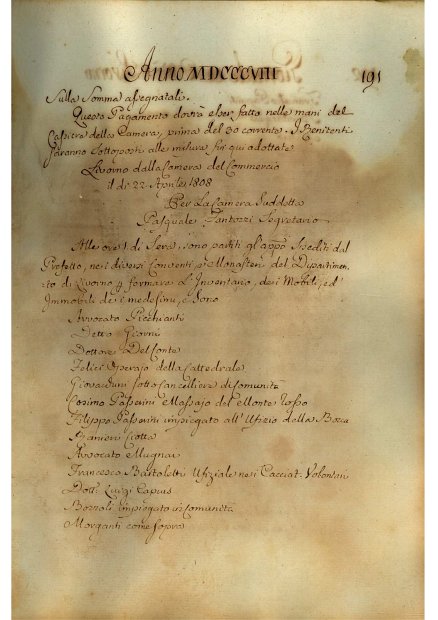 Anno MDCCCVIII 191
Sulla Somma assegnatali.
Questo Pagamento dovrà esser fatto nelle mani del
Cassiere della Camera, prima del 30 corrente. I Renitenti
saranno sottoposti alle misure fin qui adottate
Livorno dalla Camera del Commercio
il di 22 Aprile 1808
Per La Camera Suddetta
Pasquale Fantozzi Segretario
Alle ore 1 di Sera sono partiti gl'appō Spediti dal
Prefetto, nei diversi Conventi, e Monasteri del Dipartimen-
to di Livorno p formare L'Inventario, dei Mobili, ed
Immobili dei medesimi, e Sono
Avvocato Picchianti
Detto Giovni
Dottore Del Conte
Felici Operajo della Cattedrale
Giovanduni sotto Cancelliere di Comunità
Cosimo Passerini e Massajo del Monte Rosso
Filippo Passerini impiegato all'Ufizio della Bocca
Ranieri Ciotta
Avvocato Mugnai
Francesco Bartoletti Ufiziale nei Cacciat. Volontari
Dott. Luigi Capuis
Borroli impiegato in Comunità
Morganti come sopra